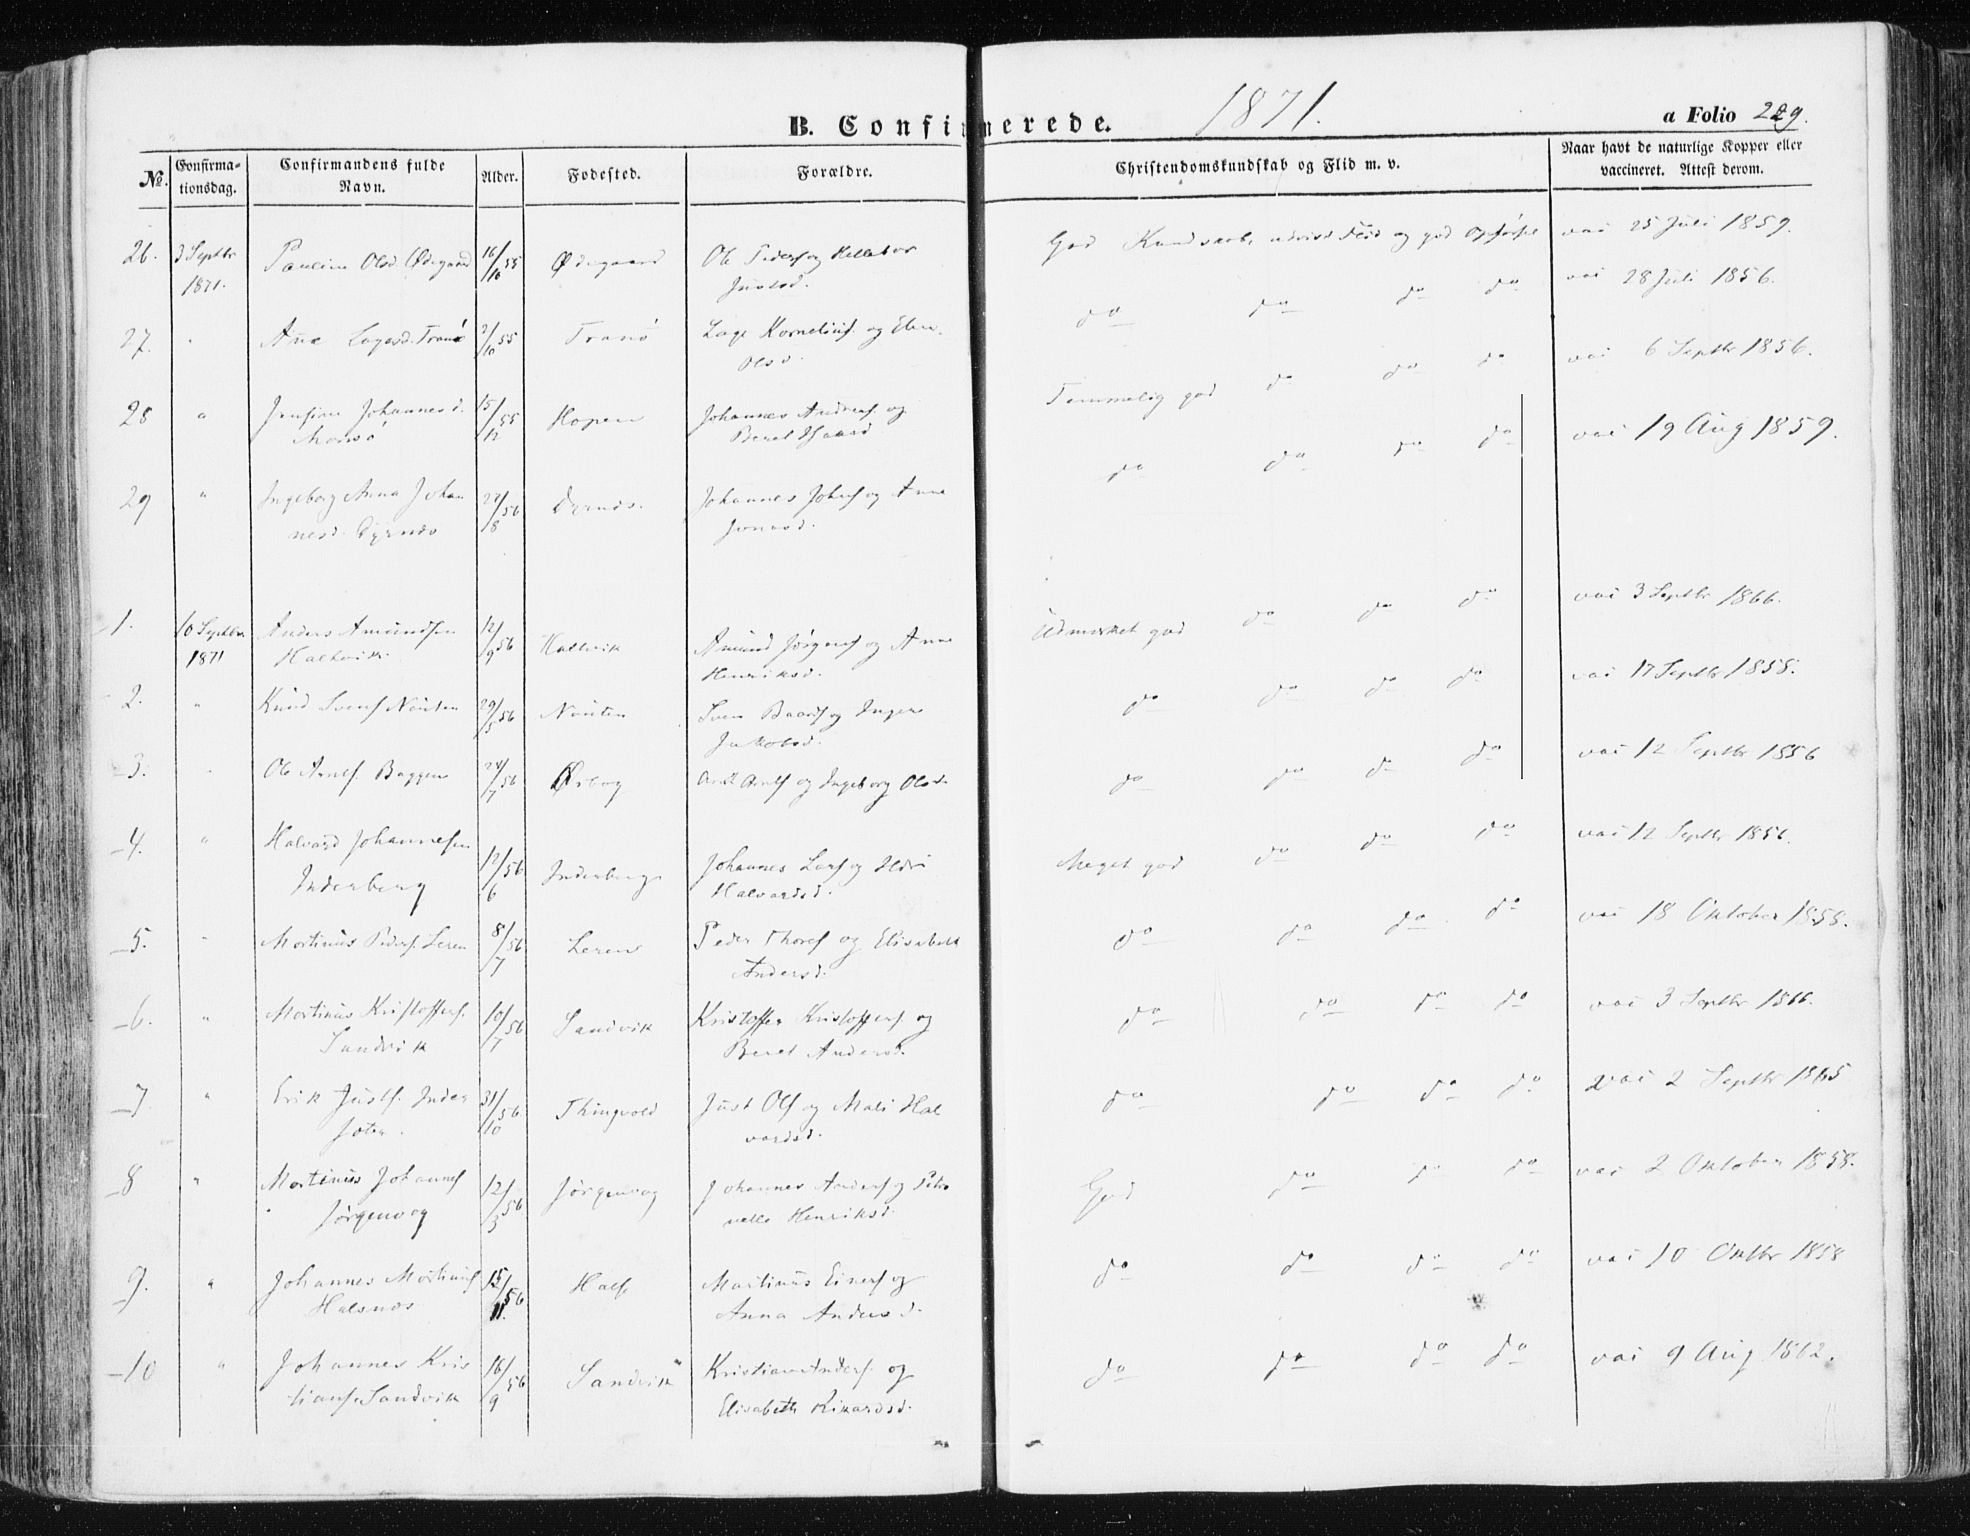 B. Confirmerede.
1871.
a Folio 229.
No. Confirma-tionsdag. Confirmandens fulde Navn. Alder. Fødested. Forældre. Christendomskundskab og Flid m. v. Naar havt de naturlige Kopper eller vaccineret. Attest derom.
26. 3 Septbr 1871. Pauline Olsd. Ødegaard 16/10 55 Ødegaard Ole Peders og
Justsd. God Kundskab, udvist Flid og god Opførsel vac 25 Juli 1859.
27. " Ane Lagesd. Tranö 2/10 55 Tranö Lage Kornelius. og
Olsd. do do do do vac 28 Juli 1856.
28 " Jensine Johannesd. 15/12 55 Hopen Johannes Anders. og
Beret Temmelig god do do do vac 6 Septbr 1856.
29 " Ingeborg Anna Johan 27/8 56 Dyrnæs. Johannes Johns og Anne
nesd. Dyrnæs Jonasd. do do do do vac 19 Aug 1859.
1. 10 Septbr. 1871 Anders Amundsen 12/9 56 Halsvik Amund Jørgens og Anne
Halsvik. Henriksd. Udmerket god do do do vac 3 Septbr 1866.
2. " Knud Svens Nauten 29/5 56 Nauten Sven Baards og Inger
Jakobsd. do do do do vac 17 Septbr 1858.
3. " Ole Arnts. Baggen 24/7 56 Ørbog Arnt Arnts og Ingeborg Olsd. do do do do vac 12 Septbr 1856
4. " Halvard Johannesen 12/6 56 Inderberg Johannes Lars og
Inderberg Halvardsd. Meget god do do do vac 12 Septbr 1856.
5. " Martinus Peders. Leren 8/7 56 Leren Peder Thores og Elisabeth
Andersd. do do do do vac 18 Oktober 1858.
6. " Martinus Kristoffers. 10/7 56 Sandvik Kristoffer Kristoffers. og
Sandvik Beret Andersd. do do do do vac 3 Septbr 1866.
7. " Erik Justs. Inder 31/10 56 Thingvold Just Ols og Mali Hal
sæter. vardsd. do do do do vac 2 Septbr 1865
8 " Martinus Johannes 12/3 56 Jørgenvag Johannes Anders og Petro
Jørgenvag nelle Henriksd. God do do do vac 2 Oktober 1858.
9. " Johannes Martinus 15/11. 56 Hals Martinus Einers og
Halsnæs Anna Andersd. do do do do vac 10 Oktbr 1858
10 " Johannes Kris 16/9 56 Sandvik Kristian Anders. og
tians. Sandvik Elisabeth Rikardsd. do do do do vac 9 Aug 1862.